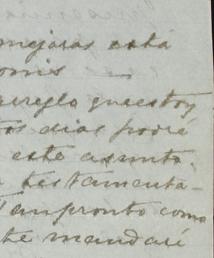 mejoras está
arreglo qu estoy
tos dias podré
este asunto.
testamenta-
Tan pronto como
te mandaré